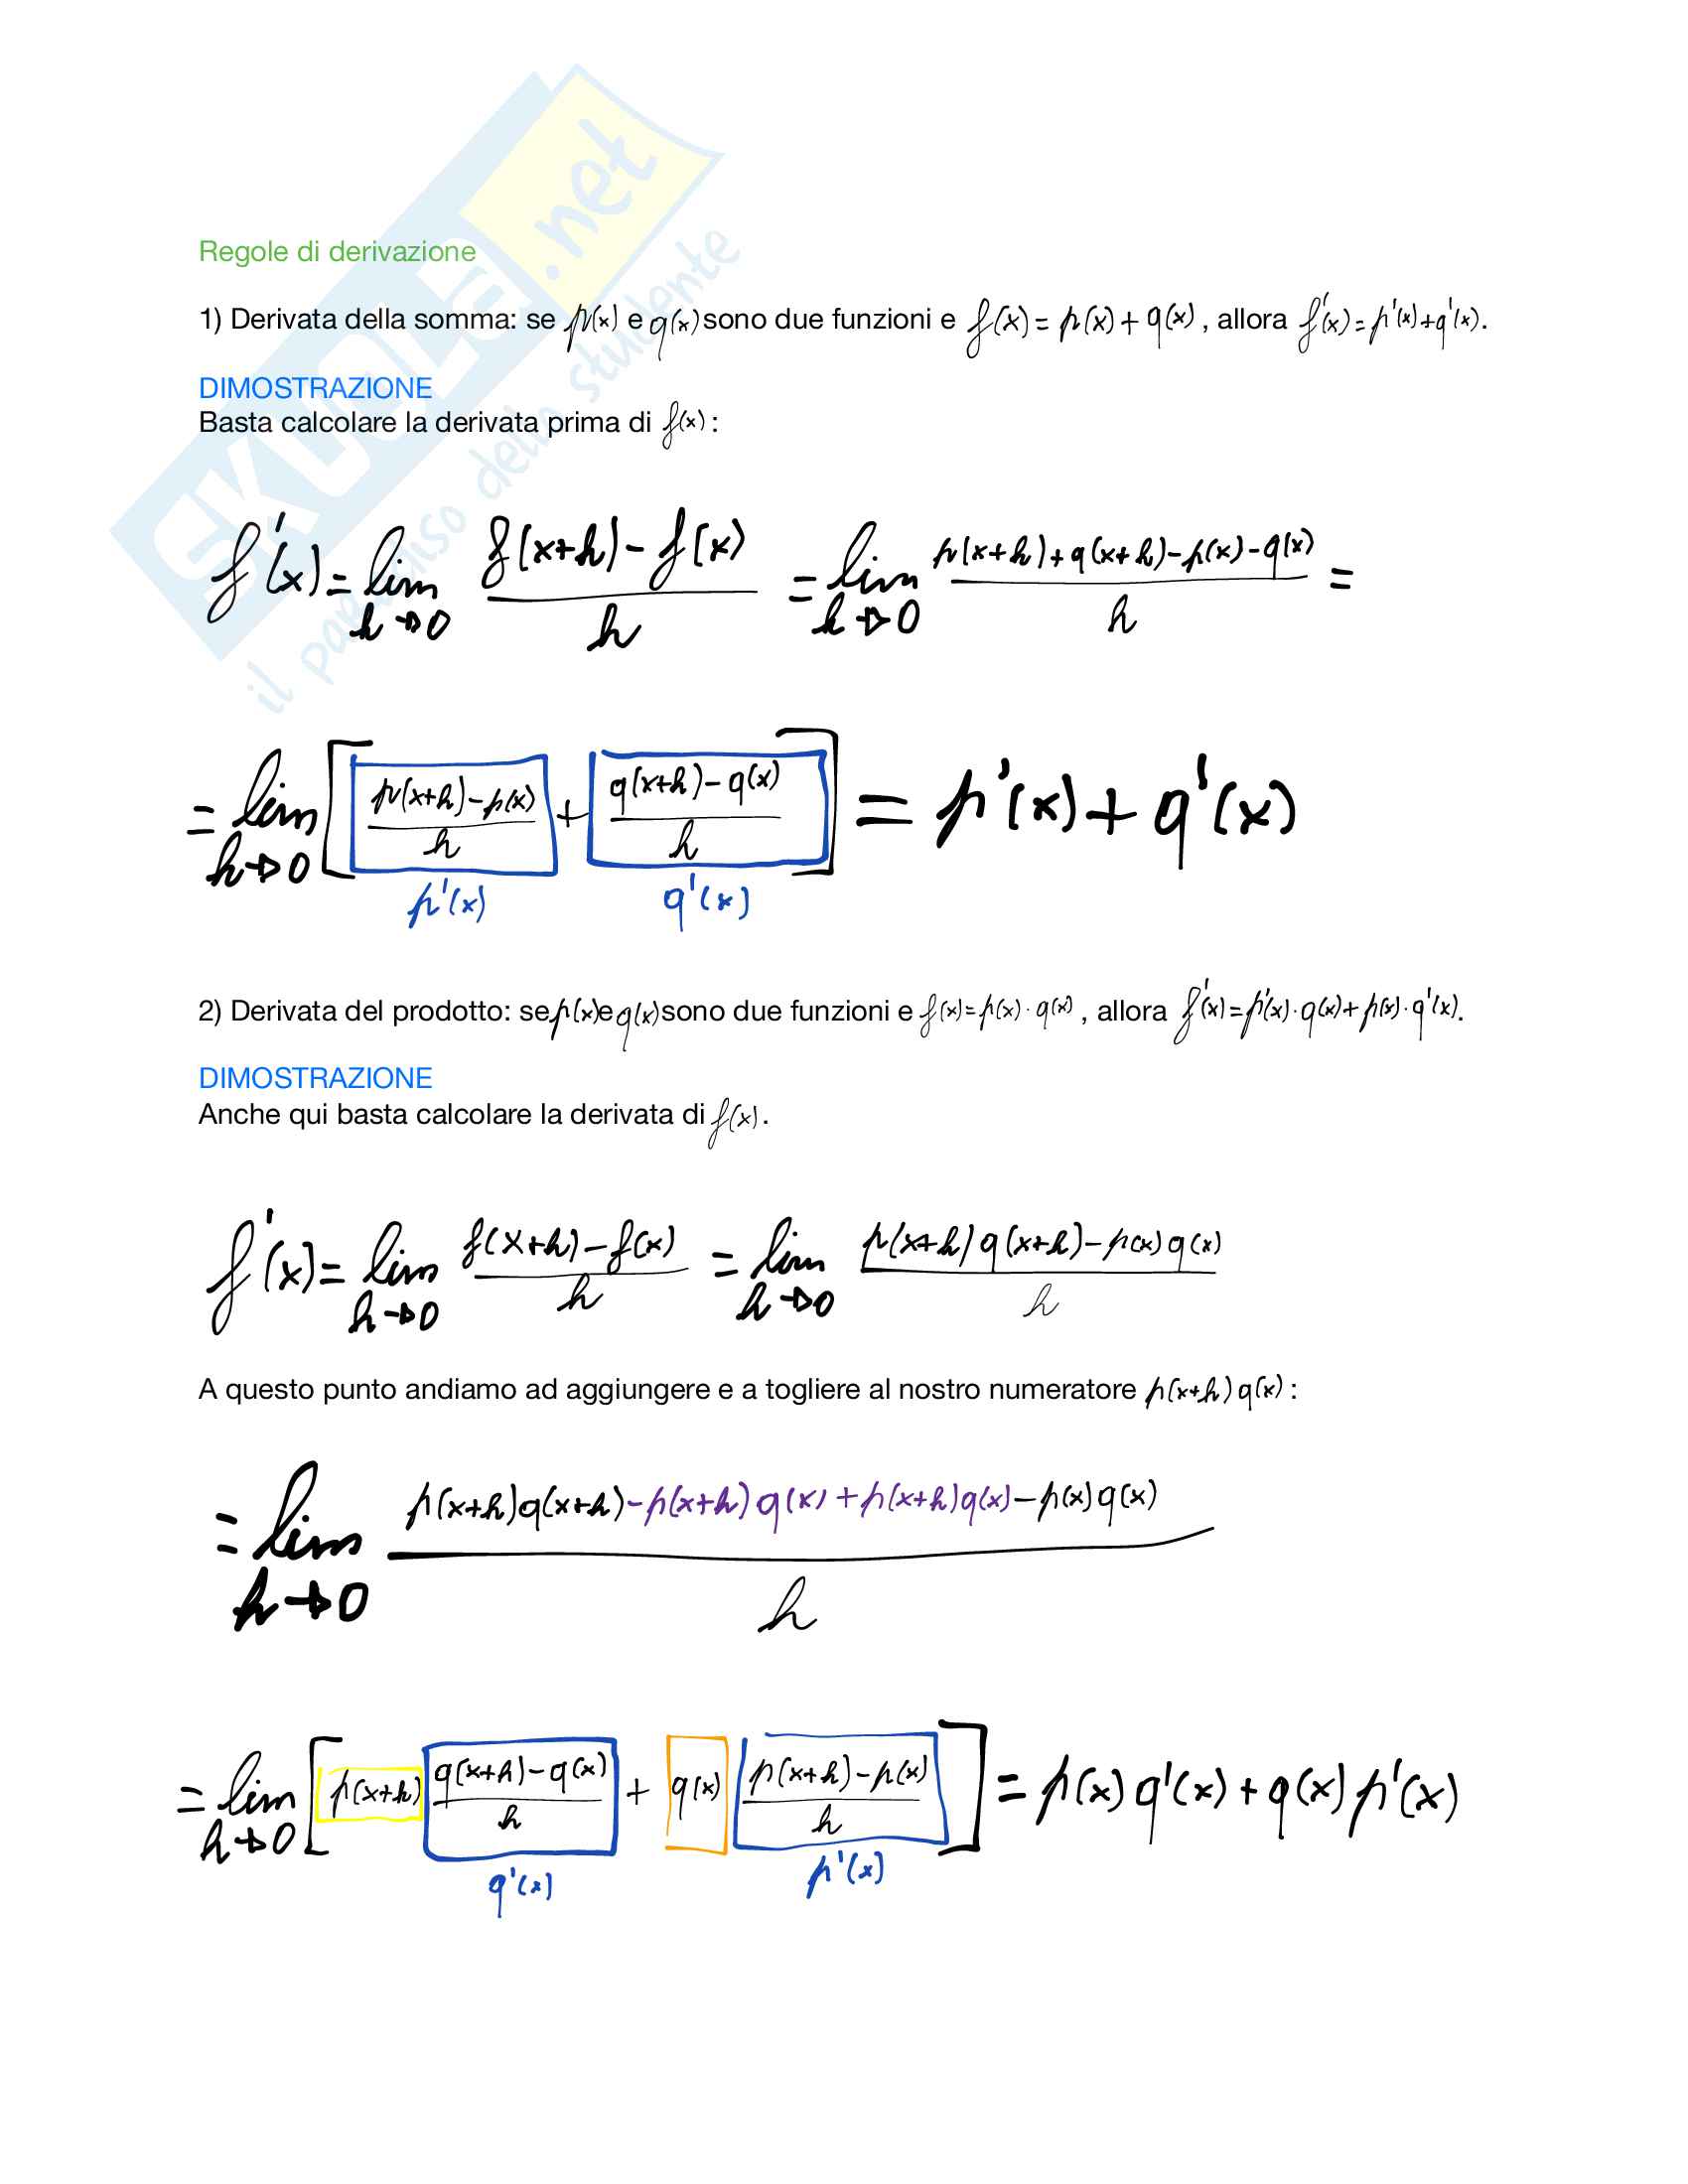 SKUOLA.net
il paradiso dello studente
Regole di derivazione
1) Derivata della somma: se p(x) e q(x) sono due funzioni e f(x) = p(x) + q(x), allora f'(x) = p'(x) + q'(x).
DIMOSTRAZIONE
Basta calcolare la derivata prima di f(x):
f'(x) = lim h→0 f(x+h) - f(x) / h = lim h→0 p(x+h) + q(x+h) - p(x) - q(x) / h =
= lim h→0 [ p(x+h) - p(x) / h + q(x+h) - q(x) / h ] = p'(x) + q'(x)
p'(x) q'(x)
2) Derivata del prodotto: se p(x) e q(x) sono due funzioni e f(x) = p(x) · q(x), allora f'(x) = p'(x) · q(x) + p(x) · q'(x).
DIMOSTRAZIONE
Anche qui basta calcolare la derivata di f(x).
f'(x) = lim h→0 f(x+h) - f(x) / h = lim h→0 p(x+h) q(x+h) - p(x) q(x) / h
A questo punto andiamo ad aggiungere e a togliere al nostro numeratore p(x+h) q(x) :
= lim h→0 p(x+h) q(x+h) - p(x+h) q(x) + p(x+h) q(x) - p(x) q(x) / h
= lim h→0 [ p(x+h) q(x+h) - q(x) / h + q(x) p(x+h) - p(x) / h ] = p(x) q'(x) + q(x) p'(x)
q'(x) p'(x)